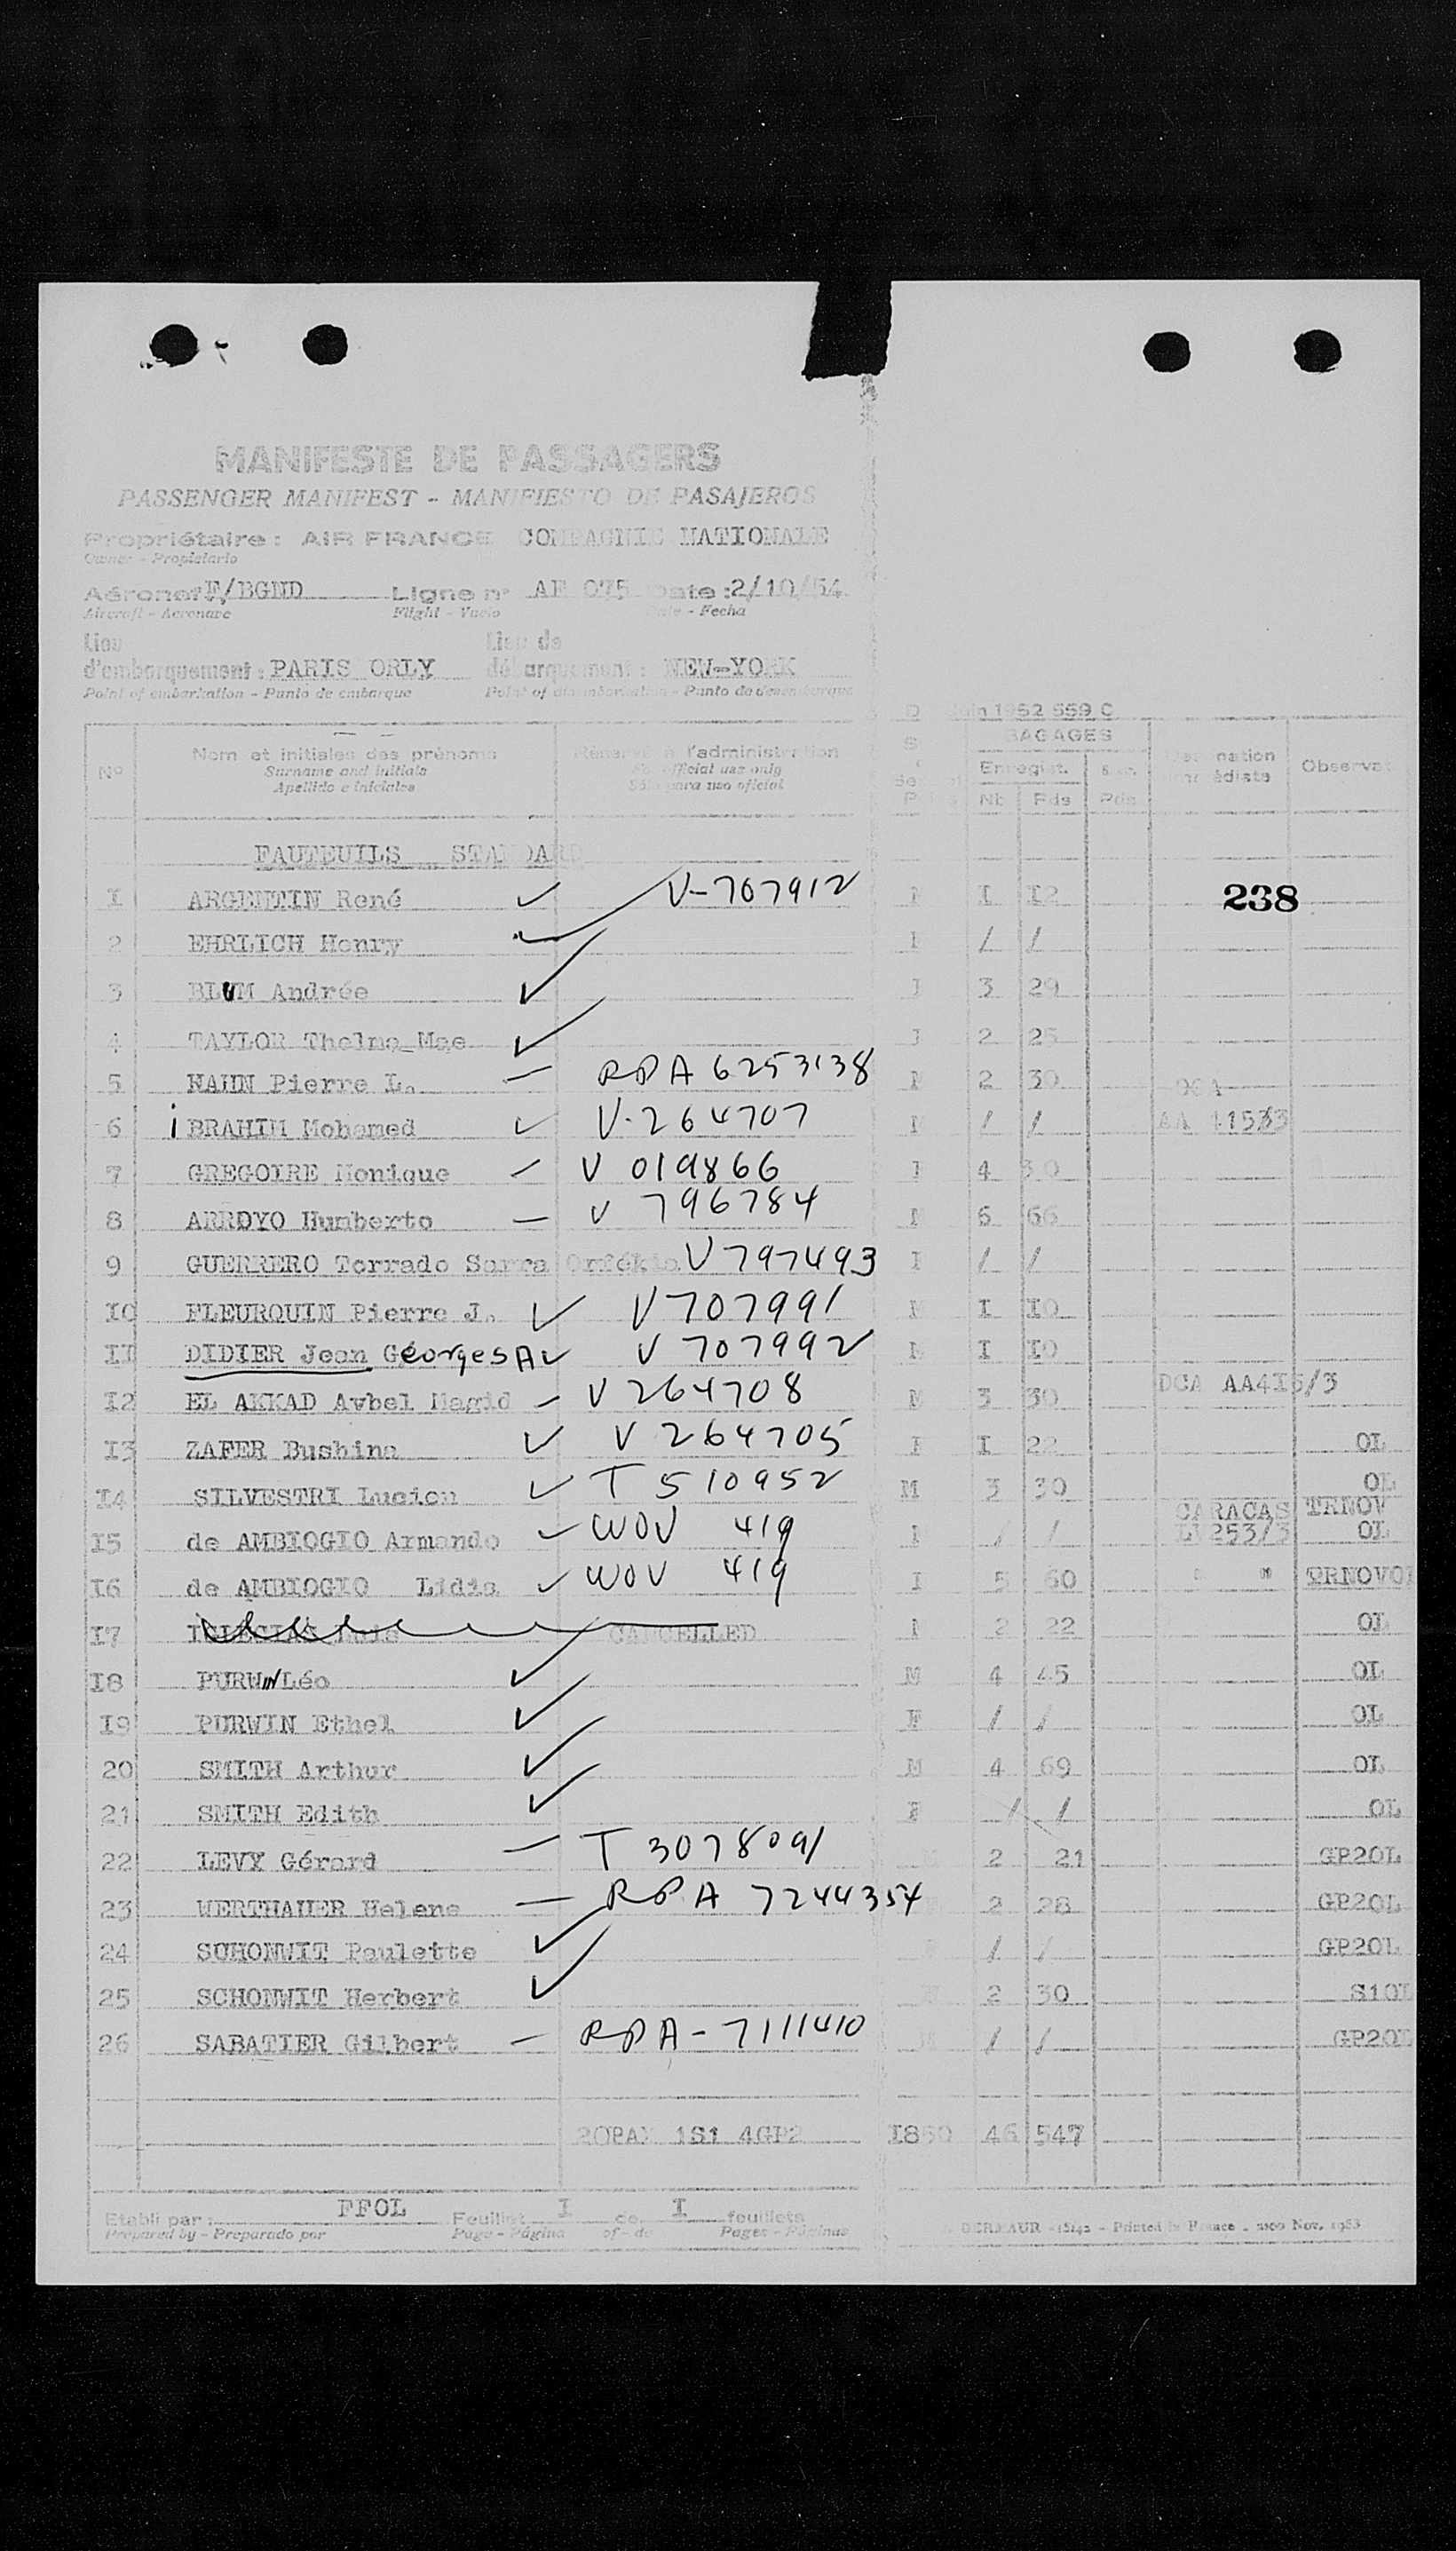 MANIFESTE DE PASSAGERS
PASSENGER MANIFEST - MANIFIESTO DE PASAJEROS
Propriétaire : AIR FRANCE COMPAGNIE NATIONALE
Owner - Propietario
Aéronef F/BGND Ligne n° AF 075 Date : 2/10/54
Aircraft - Aeronave Flight - Vuelo Date - Fecha
Lieu Lieu de
d'embarquement : PARIS ORLY débarquement : NEW-YORK
Point of embarkation - Punto de embarque Point of disembarkation - Punto de desembarque
1952 559 C
BAGAGES
N° Nom et initiales des prénoms Réservé à l'administration Enregist. Observat
Surname and initials For official use only
Apellido e iniciales Sólo para uso oficial Nb Pds Pds
FAUTEUILS STANDARD
1 ARGENTIN René ✓ V-707912 I 12 238
2 EHRLICH Henry ✓ / /
3 BLUM Andrée ✓ 3 29
4 TAYLOR Thelma Mae ✓ 2 25
5 KAHN Pierre L. — RPA 6253138 2 30
6 iBRAHIM Mohamed ✓ V-264707 / / AA
7 GREGOIRE Monique — V 019866 4 30
8 ARROYO Humberto — V 796784 6 66
9 GUERRERO Torrado Sarra V797493 / /
10 FLEURQUIN Pierre J. ✓ V707991 I I0
II DIDIER Jean Georges A ✓ V 707992 I I0
I2 EL AKKAD Avbel Magid — V264708 3 30 DCA AA4I5/3
I3 ZAFER Bushina ✓ V 264705 F I 22 OL
I4 SILVESTRI Lucien ✓ T 510952 M 3 30 OL
CARACAS TRNOV
I5 de AMBIOGIO Armando ✓ WOV 419 / / 253/3 OL
I6 de AMBIOGIO Lidia ✓ WOV 419 5 60 " TRNOVO
I7 CANCELLED 2 22 OL
I8 PURWIN Léo ✓ M 4 45 OL
I9 PURWIN Ethel ✓ F / / OL
20 SMITH Arthur ✓ M 4 69 OL
21 SMITH Edith ✓ F / / OL
22 LEVY Gérard — T 3078091 2 21 GP2OL
23 WERTHAUER Helene — RPA 7244354 2 28 GP2OL
24 SCHONWIT Paulette ✓ / / GP2OL
25 SCHONWIT Herbert ✓ 2 30 S1OL
26 SABATIER Gilbert — RPA-7111410 / / GP2OL
20PAX 1S1 4GP2 46 547
Etabli par : FFOL Feuillet I de I feuillets
Prepared by - Preparado por Page - Página of - de Pages - Páginas Printed in France - Nov. 1953